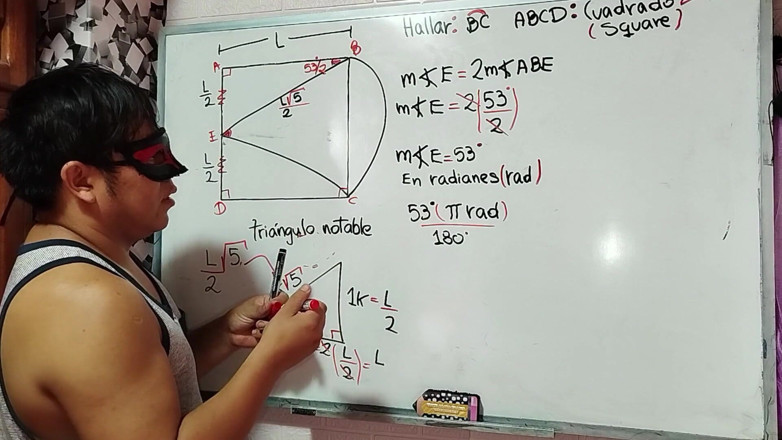 Hallar: BC ABCD: Cuadrado
(Square)
L
A
B
53/2
L/2
L√5/2
E
L/2
D
C
m∡E = 2m∡ABE
m∡E = 2(53°/2)
m∡E = 53°
En radianes(rad)
53°(π rad)/180°
triángulo notable
L/2 √5
√5
1k = L/2
2(L/2) = L